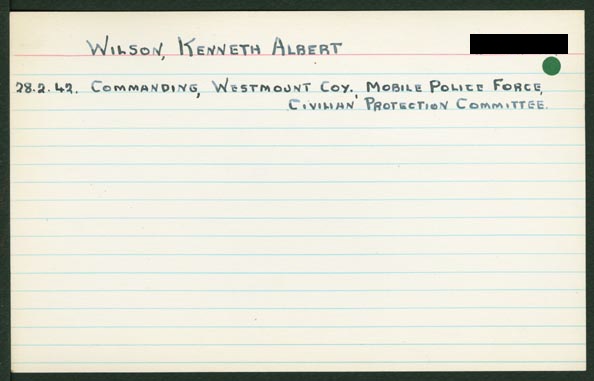 WILSON, KENNETH ALBERT
28.2.42. COMMANDING, WESTMOUNT COY. MOBILE POLICE FORCE,
CIVILIAN PROTECTION COMMITTEE.